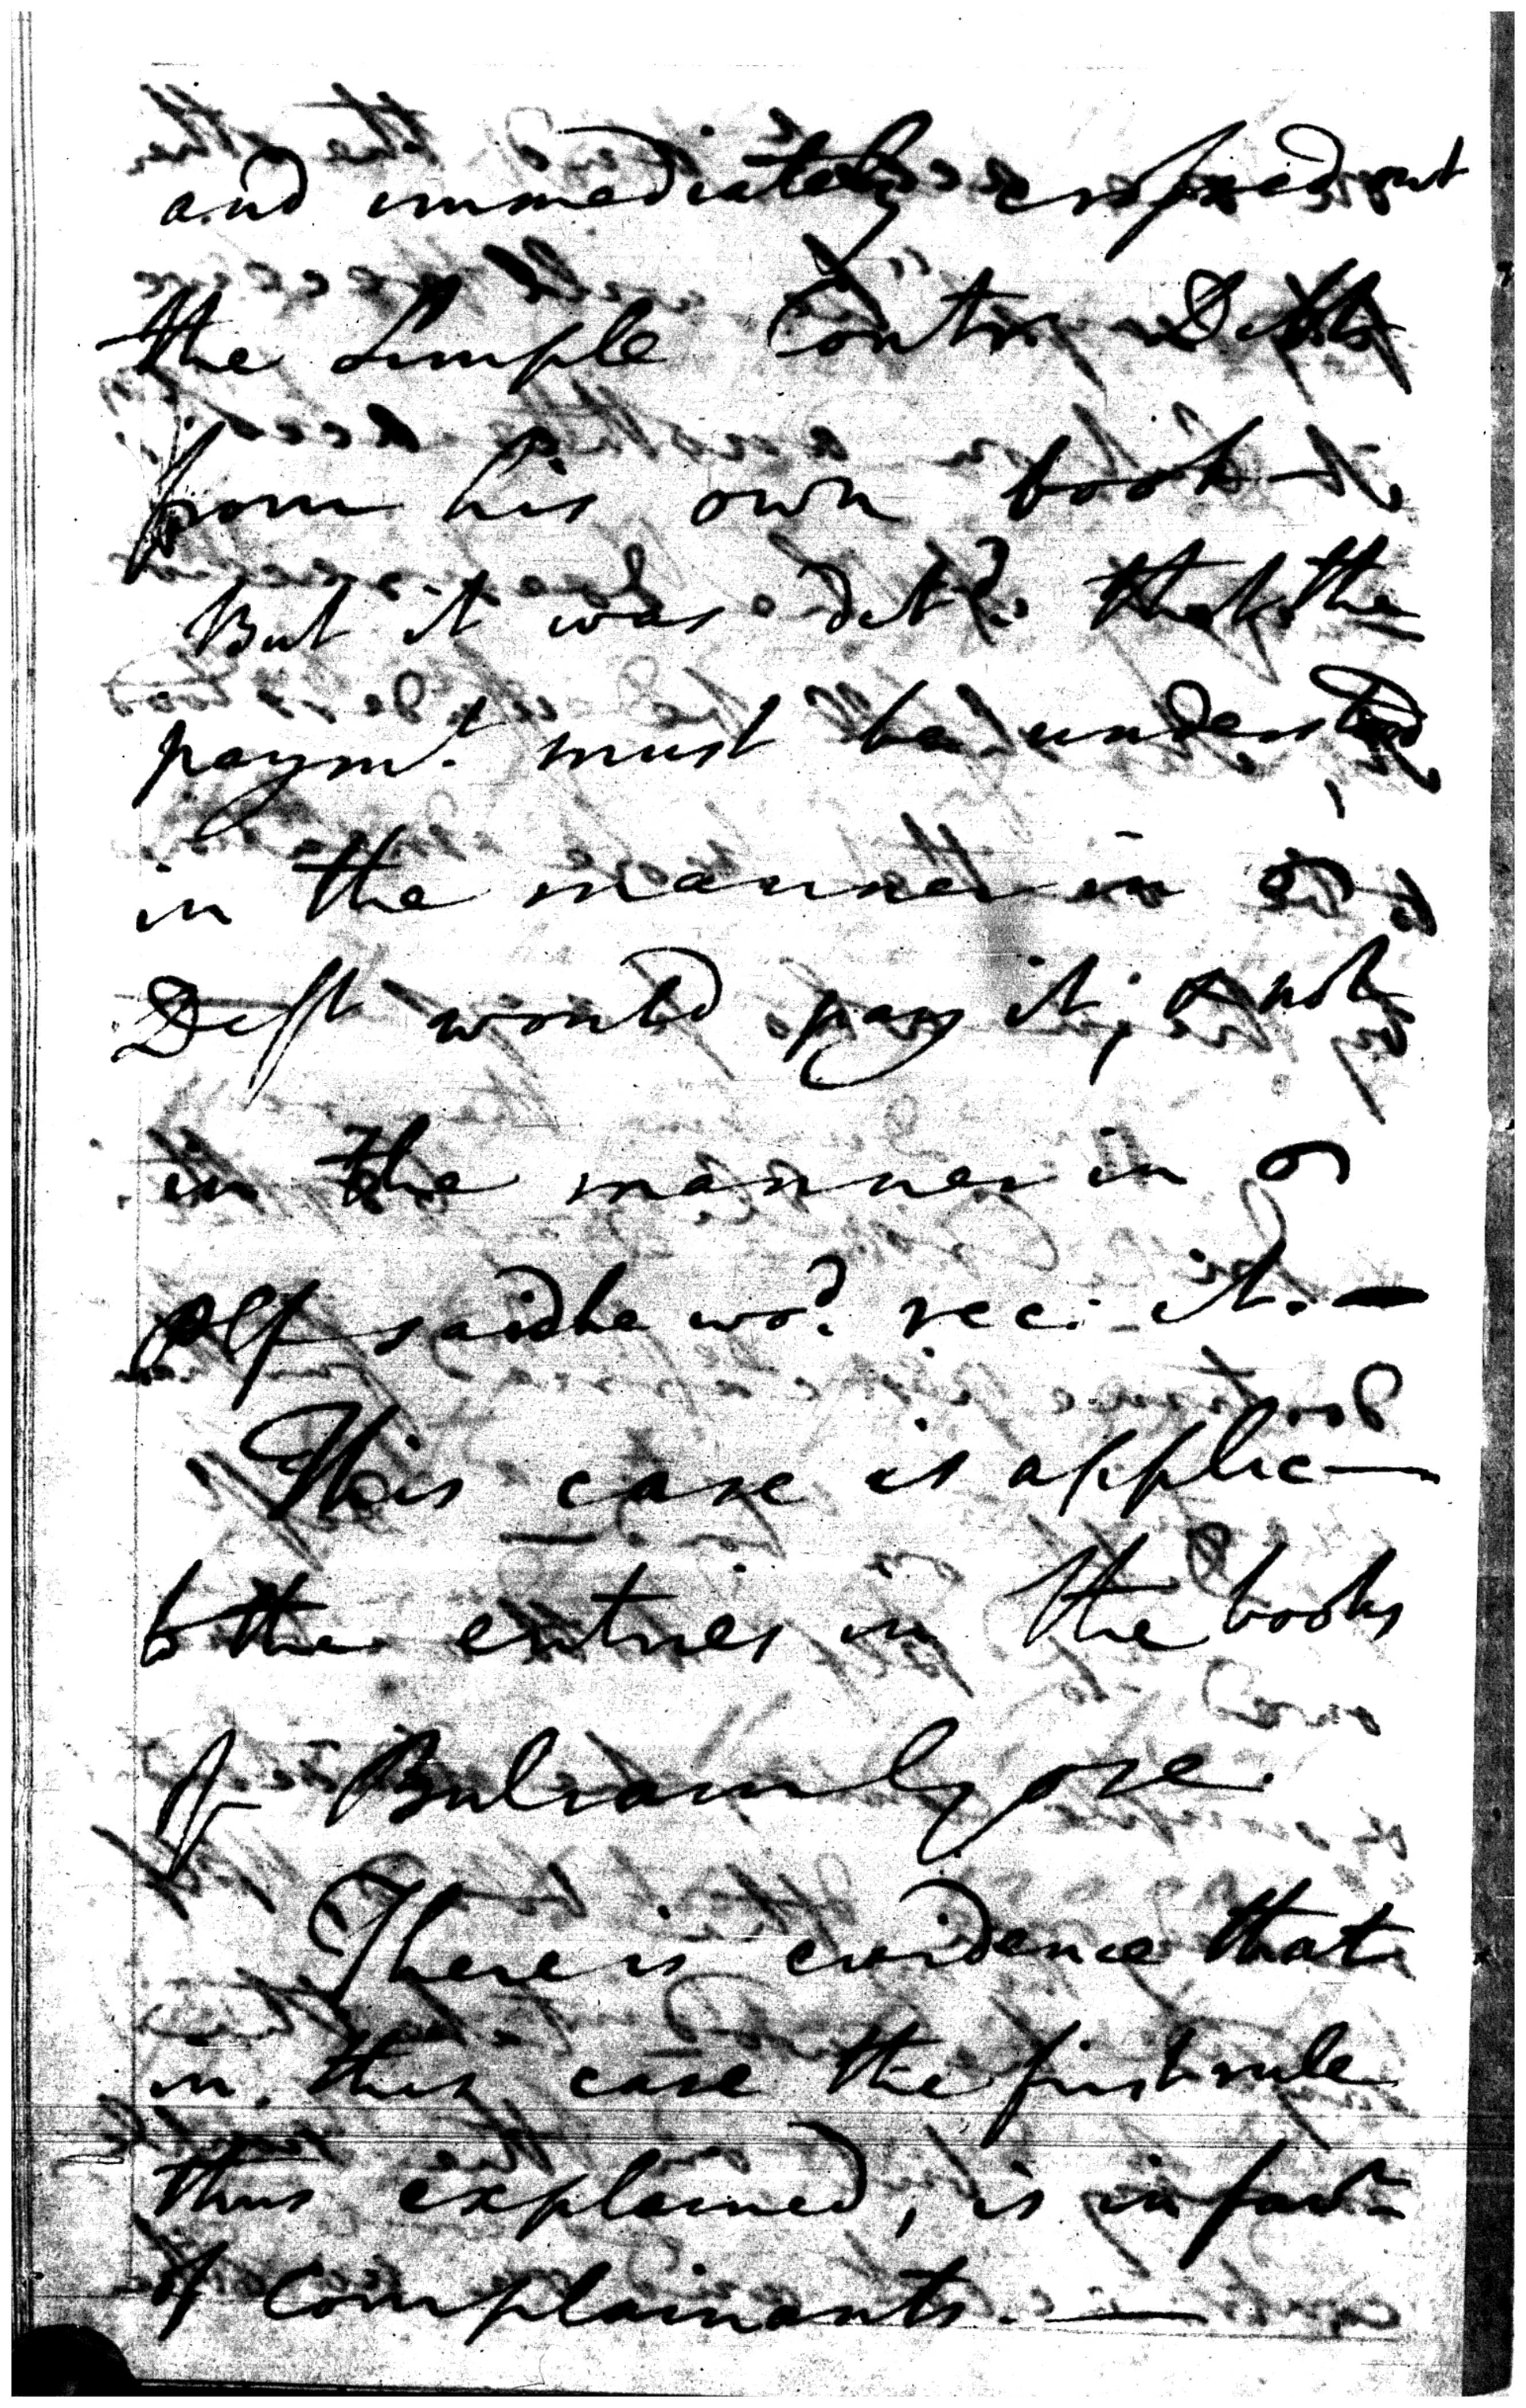 and immediately crossed out
the Simple Contr. Debts
from his own book
But it was det.d that the
paym.t must be understood
in the manner in
Deft would pay it, & not
in the manner in
Plf said he wo.d rec. it. —
This case is applic—
to the entries in the books
of
There is evidence that
in this case the first rule
thus explained, is in fav.r
of Complainants. —